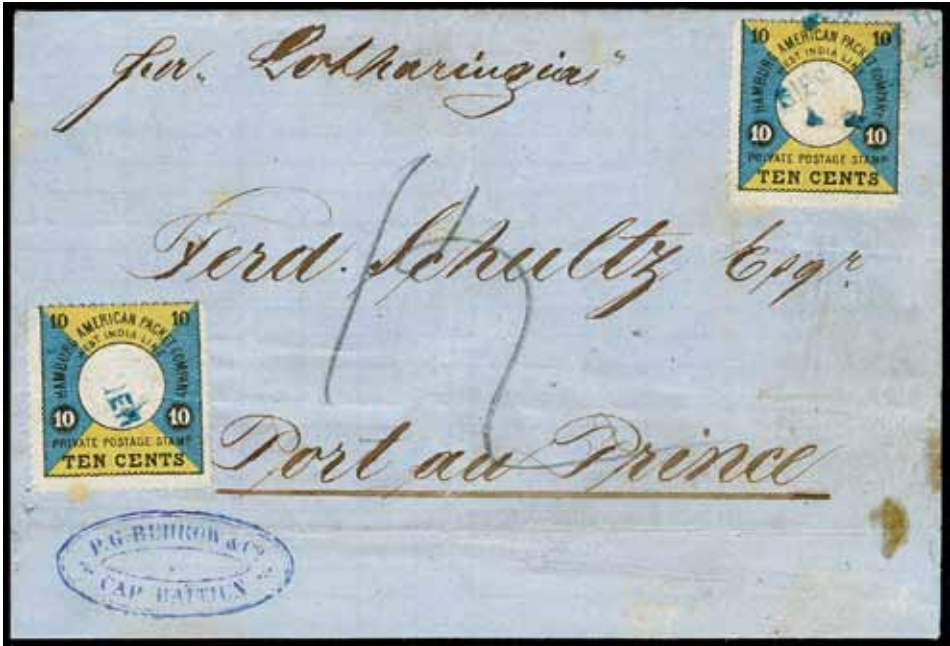 per "Lotharingia"
10 10
HAMBURG AMERICAN PACKET COMPANY
WEST INDIA LINE
10 10
PRIVATE POSTAGE STAMP
TEN CENTS
Ferd. Schultz Esqr
10 10
HAMBURG AMERICAN PACKET COMPANY
WEST INDIA LINE
10 10
PRIVATE POSTAGE STAMP
TEN CENTS
Port au Prince
P.G. BUHROW & Co
CAP HAITIEN